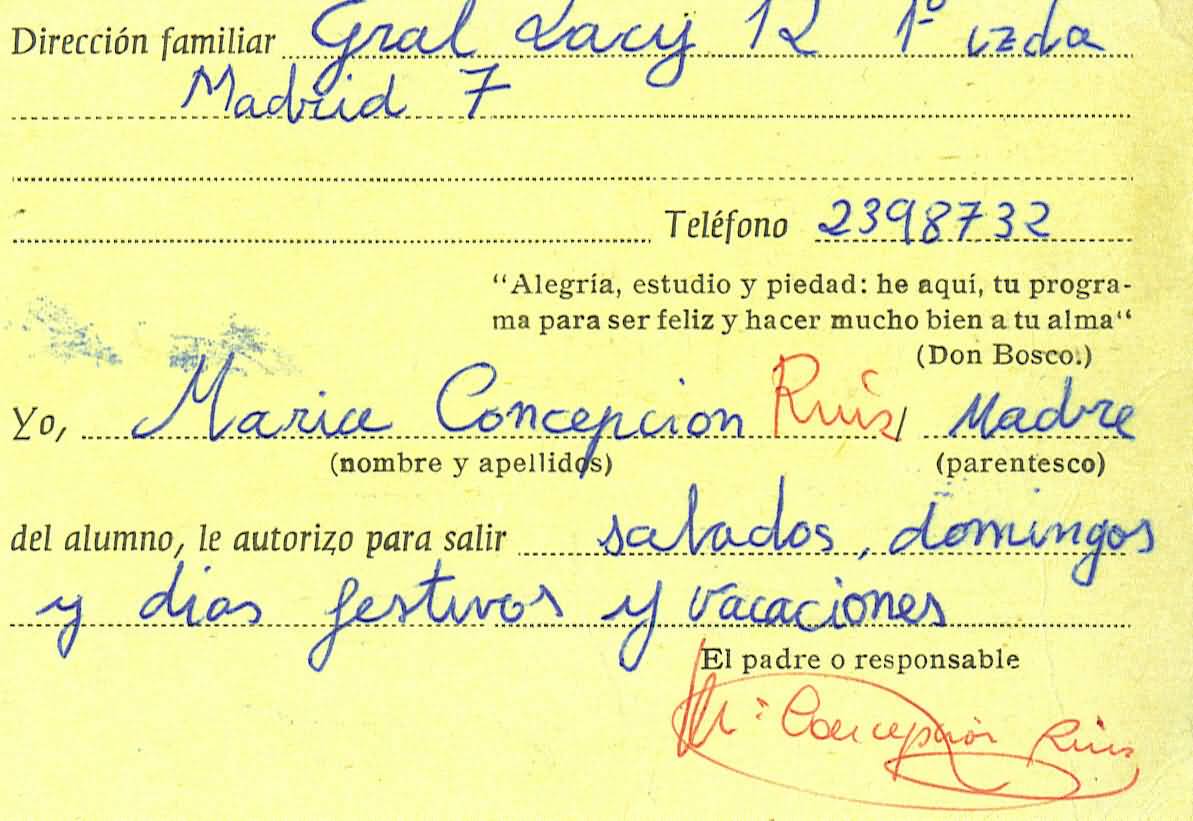 Dirección familiar Gral Lacy 12 1º izda
Madrid 7
Teléfono 2398732
“Alegría, estudio y piedad: he aquí, tu progra-
ma para ser feliz y hacer mucho bien a tu alma“
(Don Bosco.)
Yo, Maria Concepcion Ruis / Madre
(nombre y apellidos) (parentesco)
del alumno, le autorizo para salir sabados, domingos
y dias festivos y vacaciones
El padre o responsable
Mª Concepción Ruis